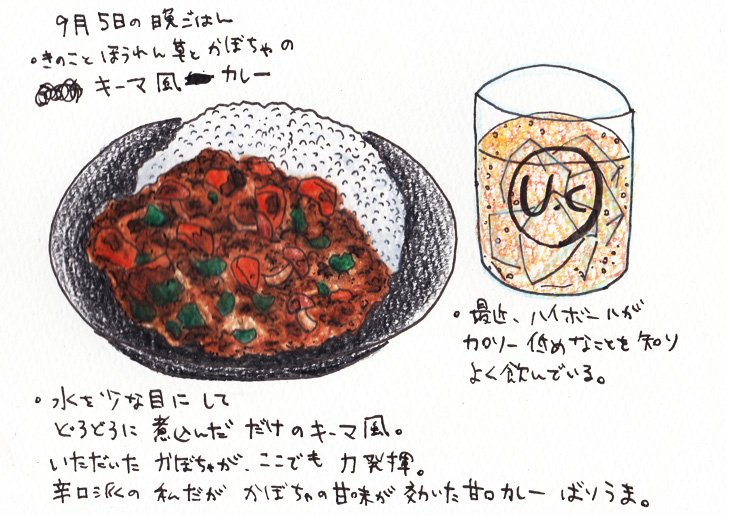 9月5日の晩ごはん
・きのことほうれん草とかぼちゃの
キーマ風カレー
ひと
・最近、ハイボールが
カロリー低めなことを知り
よく飲んでいる。
・水を少な目にして
どろどろに煮込んだだけのキーマ風。
いただいたかぼちゃが、ここでも力発揮。
辛口派の私だがかぼちゃの甘味が効いた甘口カレーばりうま。